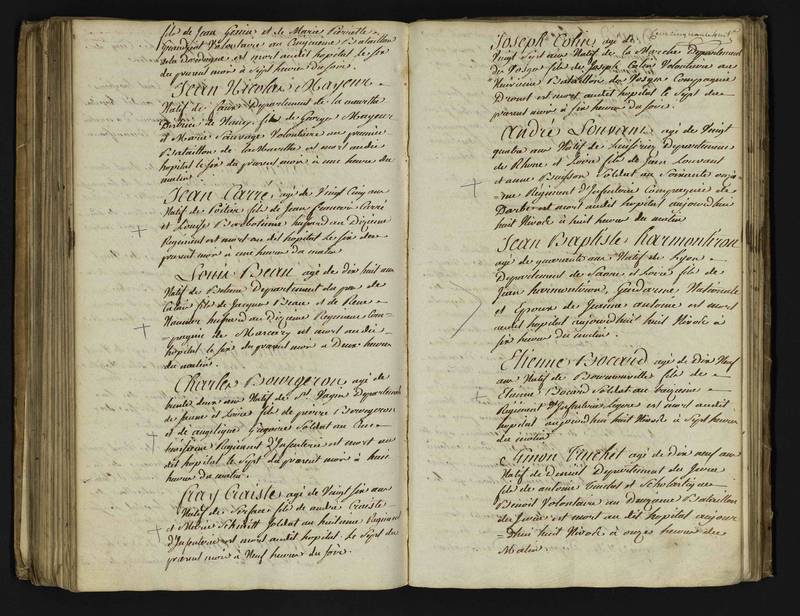 fils de Jean Génin et de Marie Pierrette
Grandjot Volontaire au Cinquieme Bataillon
de la Dordogne est mort audit hopital le six
du present mois à Sept heures du soir.
Jean Nicolas Mayeur
Natif de Departement de la meurthe
District de fils de George Mayeur
et Marie Sauvage Volontaire au premier
Bataillon de la Moselle est mort audit
hopital le six du present mois à une heure du
matin
Jean Carré agé de Vingt Cinq ans
Natif de Poitier fils de Jean francois Carré
et Louise Bartholome husard au Dixieme
Regiment est mort au dit hopital le six du
present mois à une heure du matin
Louis Beau agé de dix huit ans
Natif de Departement du pas de
Calais fils de Jacques Beau et de
husard au Dixieme Regiment Com-
-pagnie de est mort au dit
hopital le six du present mois à Deux heures
du matin.
Charles Bourgeron agé de
trente deux ans Natif de St. Departement
de Saone et Loire fils de pierre Bourgeron
et de angelique Gregoire Soldat au Cin-
Regiment D'Infanterie est mort au
dit hopital le Sept du present mois à huit
heures du matin.
fray Craisle agé de Vingt six ans
Natif de fils de andré Craisle
et Marie Schmitt Soldat au huitieme Regiment
d'Infanterie est mort audit hopital le Sept du
present mois à Neuf heures du soir.
Joseph Colin agé de
Vingt Sept ans Natif de la Marche Departement
de Vosge fils de Joseph Colin Volontaire au
Bataillon de Vosge Compagnie
est mort audit hopital le Sept du
present mois à six heures du soir.
André Louvant agé de Vingt
quatre ans Natif de Departement
de Rhone et Loire fils de Jean Louvant
et anne Buisson Soldat au Soixante onzie-
-me Regiment d'Infanterie Compagnie de
est mort audit hopital aujourdhui
huit Nivose à huit heures du matin
Jean Baptiste harmontiron
agé de quarante ans Natif de Lyon
Departement de Saone et Loire fils de
Jean harmontiron, Gendarme Nationale
et Epoux de Jeanne antoine est mort
audit hopital aujourdhuit huit Nivose à
six heures du matin.
Etienne Bocard agé de Dix Neuf
ans Natif de fils de
Etienne Bocard Soldat au
Regiment d'Infanterie Legere est mort audit
hopital aujourdhui huit Nivose à Sept heures
du matin
Simon Truchet agé de dix neuf ans
Natif de Departement du Jura
fils de antoine Truchet et Scholastique
Benoit Volontaire au Douzieme Bataillon
du Jura est mort au dit hopital aujour
-dhui huit Nivose à onze heures du
Matin.